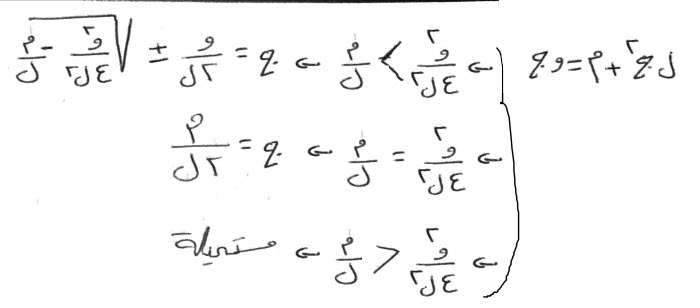 ل ج٢ + م = و ج ← و٢/٤ل٢ > م/ل ← ج = و/٢ل ± √(و٢/٤ل٢ - م/ل)
← و٢/٤ل٢ = م/ل ← ج = م/٢ل
← و٢/٤ل٢ < م/ل ← مستحيلة